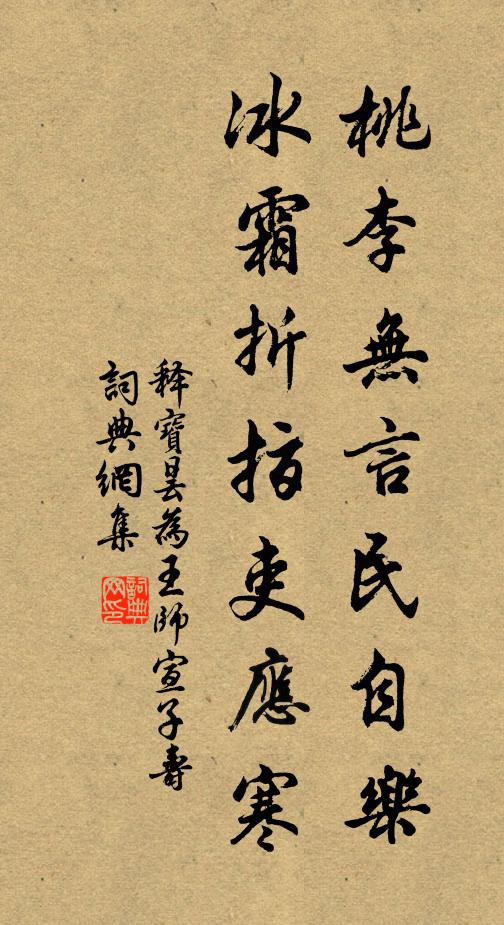 桃李無言民自樂
冰霜折指吏應寒
释寶曇為王師宣子壽
詞典網集
詞典网印